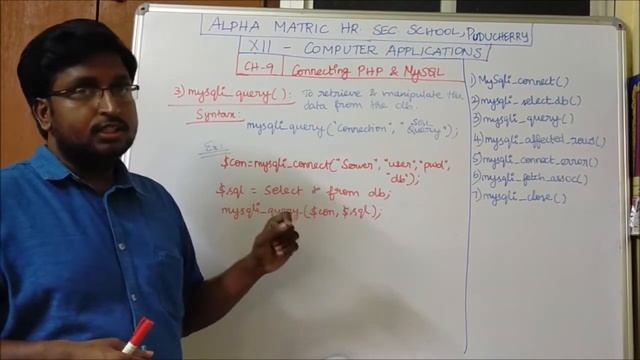 ALPHA MATRIC HR. SEC. SCHOOL, PUDUCHERRY
XII - COMPUTER APPLICATIONS
CH-9 Connecting PHP & MySQL
3) mysqli_query() : To retrieve & manipulate the
data from the db.
Syntax:
mysqli_query("connection", "SQL
Query");
Ex:
$con=mysqli_connect("Server", "user", "pwd",
"db");
$sql = Select * from db;
mysqli_query($con, $sql);
1) MySqli_connect()
2) mysqli_select db()
3) mysqli_query()
4) mysqli_affected_rows()
5) mysqli_connect_error()
6) mysqli_fetch_assoc()
7) mysqli_close()